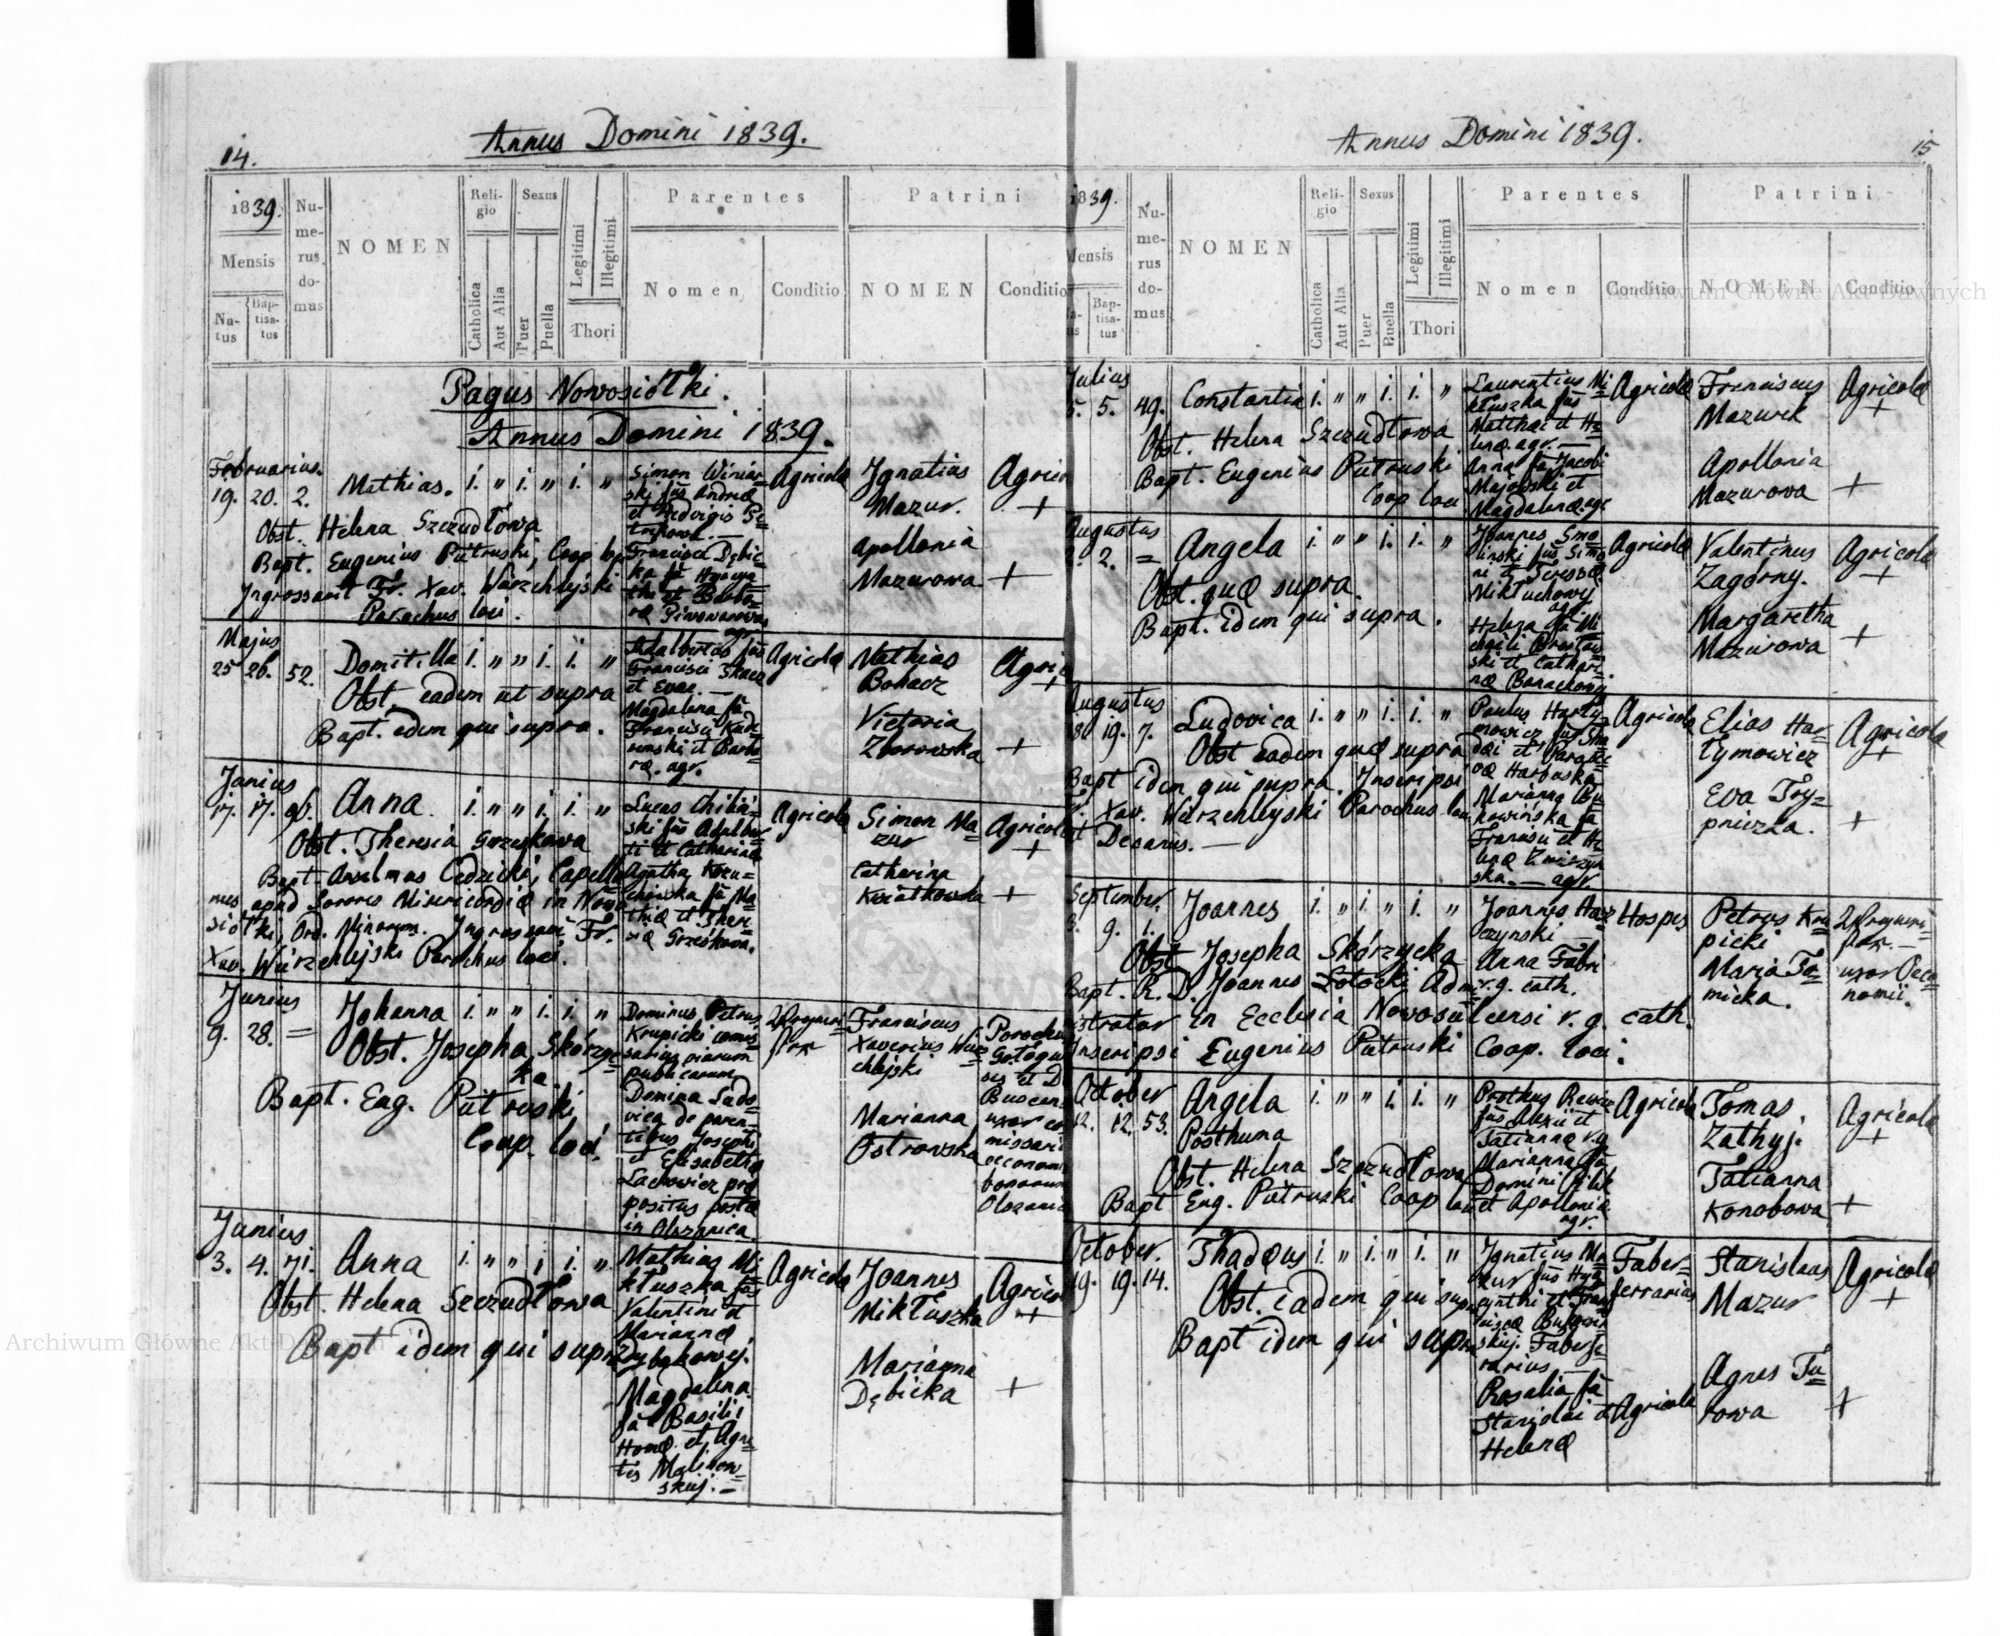 14.
Annus Domini 1839.
1839.
Mensis
Na-
tus
Bap-
tisa-
tus
Nu-
me-
rus
do-
mus
NOMEN
Reli-
gio
Catholica
Aut Alia
Sexus
Puer
Puella
Legitimi
Illegitimi
Thori
Parentes
Nomen
Conditio
Patrini
NOMEN
Conditio
Pagus Nowosiołki.
Annus Domini 1839.
Februarius.
19. 20. 2. Mathias. i. „ i. „ i. „
Obst. Helena Szczudłowa
Bapt. Eugenius Putruski, Coop
Ingrossavit Fr. Xav. Wierzchlejski
Parochus loci.
Simon Winiar=
ski fus Andreæ
et Hedvigis
Francisca Dębic=
ka fa Hyacyn
thi et Barba=
ræ Piwowarowa
agr.
Agricolæ
Ignatius
Mazur.
Apollonia
Mazurowa
Agrico
+
+
Majus
25 26. 52. Domitilla i. „ „ i. i. „
Obst. eadem ut supra
Bapt. idem qui supra.
Adalbertus fus
Francisci
et Evae. —
Magdalena fa
Francisci
et Barba
ræ. agr.
Agricolæ
Mathias
Bohacz
Victoria
Zborowska
Agri
+
+
Junius
17. 17. 96. Anna. i. „ „ i. i. „
Obst. Theresia Grzeskowa
Bapt. Anselmus Cedzicki, Capella
nus apud Sorores Misericordiæ in Nowo
siołki, Ord. Minorum. Ingrossavi Fr.
Xav. Wierzchlejski Parochus loci.
Lucas
ski fus Adalber
ti et Catharinæ
Agatha
fa Ma
thiæ et There
siæ Grześkowa.
Agricolæ
Simon Ma=
zur
Catharina
Kwiatkowska
Agricolæ
+
+
Junius
9. 28. = Johanna i. „ „ i. i. „
Obst. Josepha Skórzyc
ka
Bapt. Eug. Putruski
Coop. loci.
Dominus Petrus
Krupicki comis
sarius viarum
publicarum
Domina Ludo=
vica de paren=
tibus Josepho
et Elisabetha
Lachowicz præ
positus postæ
in Olszanica
Franciscus
Xaverius Wierz
chlejski
Marianna
Ostrowska
Parochus
uxor co
missarii
oeconom
bonorum
Olszanic
Junius
3. 4. 71. Anna i. „ „ i i. „
Obst. Helena Szczudłowa
Bapt idem qui supra
Mathias Mi
kłuszka fus
Valentini et
Mariannæ
Magdalena
fa Basilii
et Agne
tis Malinow=
skiej. —
Agricolæ
Joannes
Mikłuszka
Marianna
Dębicka
Agrico
+
+
Annus Domini 1839.
15
1839.
Mensis
Bap-
tisa-
tus
Nu-
me-
rus
do-
mus
NOMEN
Reli-
gio
Catholica
Aut Alia
Sexus
Puer
Puella
Legitimi
Illegitimi
Thori
Parentes
Nomen
Conditio
Patrini
NOMEN
Conditio
Julius
5. 5. 49. Constantia i. „ „ i. i. „
Obst. Helena Szczudłowa
Bapt. Eugenius Putruski
Coop loci
Laurentius Mi
kłuszka fus
Matthæi et He
lenæ agr. —
Anna fa Jacobi
Majewski et
Magdalenæ agr
Agricolæ
Franciscus
Mazurek
Apollonia
Mazurowa
Agricolæ
+
+
Augustus
2. 2. = Angela i. „ „ i. i. „
Obst. quæ supra.
Bapt. idem qui supra.
Joannes Smo
liński fus Simo
ni et Teressæ
Mikłuchowej
agr.
Helena fa Mi
chaeli
ski et Cathari
næ
Agricolæ
Valentinus
Zagórny.
Margaretha
Mazurowa
Agricolæ
+
+
Augustus
18 19. 7. Ludovica i. „ „ i. i. „
Obst eadem quæ supra
Bapt idem qui supra. Inscripsi
Fr. Xav. Wierzchlejski Parochus loci
et Decanus. —
Paulus Harty=
mowicz fus
et
Marianna Bu
kowińska fa
Francisci et He
lenæ
ska. — agr.
Agricolæ
Elias Har=
tymowicz
Eva Try=
pniczka.
Agricolæ
+
+
September
3. 9. 1. Joannes i. „ i „ i. „
Obst Josepha Skórzycka
Bapt. R. D. Joannes Łotocki Admi
nistrator in Ecclesia Nowosielcensi r. g. cath.
Inscripsi Eugenius Putruski Coop. loci.
Joannes
czynski —
Anna Fabri
r. g. cath.
Hospes
Petrus Kru
picki
Maria To=
micka.
uxor Oeco
nomii.
October
12. 12. 53. Angela i. „ „ i. i. „
Posthuma
Obst. Helena Szczudłowa
Bapt Eug. Putruski Coop loci
fus Alexii et
Tatianna r. g
Marianna fa
et Apollonia
agr.
Agricolæ
Tomas
Zathyj.
Tatianna
Konobowa
Agricolæ
+
+
October.
19. 19. 14. Thadæus i. „ i. „ i. „
Obst. eadem qui supra
Bapt idem qui supra
Ignatius Ma
zur fus Hya
cynthi et Fran
ciscæ
skiej. Faber fe
rrarius —
Rosalia fa
Stanislai et
Helenæ
Faber=
ferrarius
Agricola
Stanislaus
Mazur
Agnes Tu=
rowa
Agricolæ
+
+
Archiwum Główne Akt Dawnych
Archiwum Główne Akt Dawnych